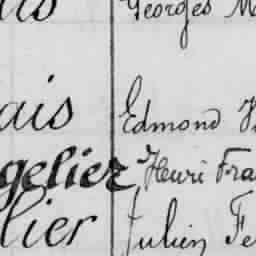 ais Georges M
ais Edmond H
gelier, Henri Fra
lier Julien Fe